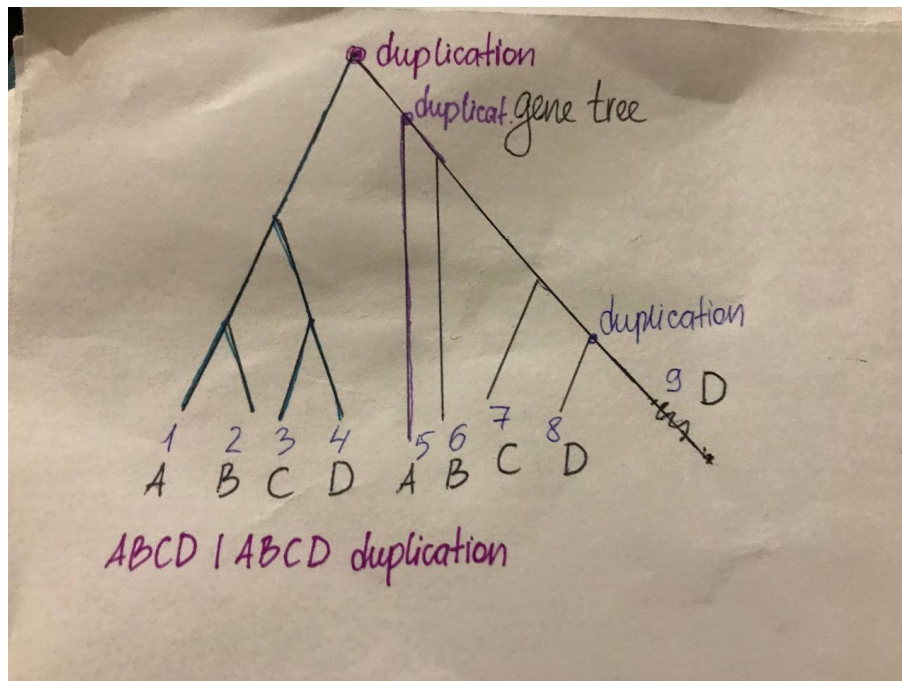 duplication
duplicat. gene tree
duplication
9 D
1 2 3 4 5 6 7 8
A B C D A B C D
ABCD | ABCD duplication